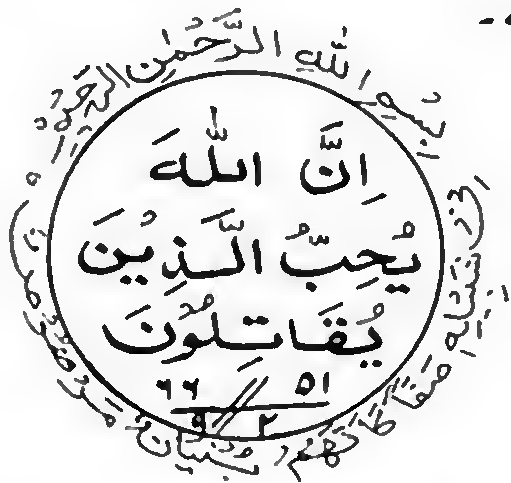 بِسْمِ اللهِ الرَّحْمٰنِ الرَّحِيْمِ
اِنَّ اللّٰهَ
يُحِبُّ الَّذِيْنَ
يُقَاتِلُوْنَ
٥١ // ٦٦
٢ ٩
صَفًّا كَاَنَّهُمْ بُنْيَانٌ مَرْصُوْصٌ